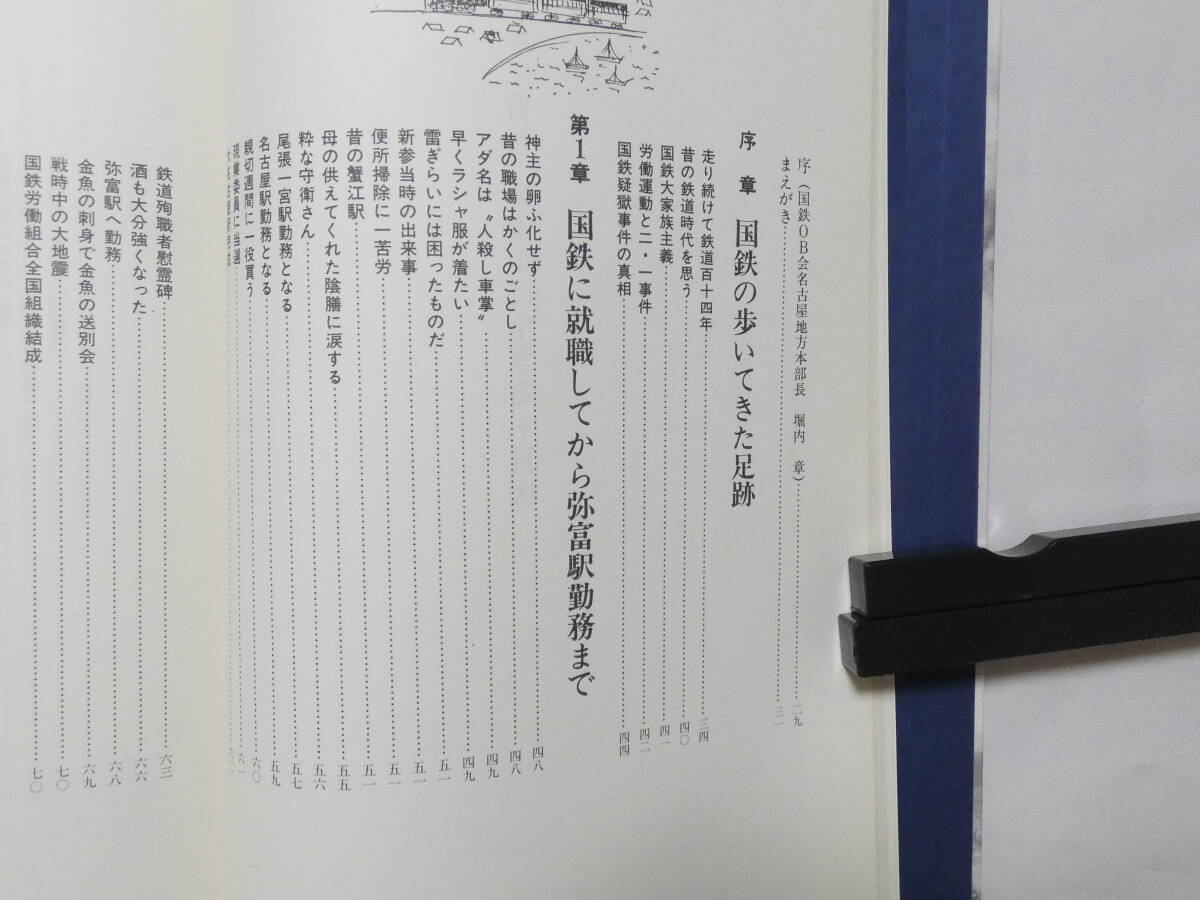 序(国鉄OB会名古屋地方本部長 堀内 章)……二九
まえがき……三一
序章 国鉄の歩いてきた足跡
走り続けて鉄道百十四年……三四
昔の鉄道時代を思う……四〇
国鉄大家族主義……四一
労働運動と二・一事件……四二
国鉄疑獄事件の真相……四四
第1章 国鉄に就職してから弥富駅勤務まで
神主の卵ふ化せず……四八
昔の職場はかくのごとし……四八
アダ名は〝人殺し車掌〟……四九
早くラシャ服が着たい……四九
雷ぎらいには困ったものだ……五一
新参当時の出来事……五一
便所掃除に一苦労……五一
昔の蟹江駅……五一
母の供えてくれた陰膳に涙する……五五
粋な守衛さん……五六
尾張一宮駅勤務となる……五七
名古屋駅勤務となる……五九
親切週間に一役買う……六〇
現業委員に当選……六一
鉄道殉職者慰霊碑……六三
酒も大分強くなった……六六
弥富駅へ勤務……六八
金魚の刺身で金魚の送別会……六九
戦時中の大地震……七〇
国鉄労働組合全国組織結成……七〇